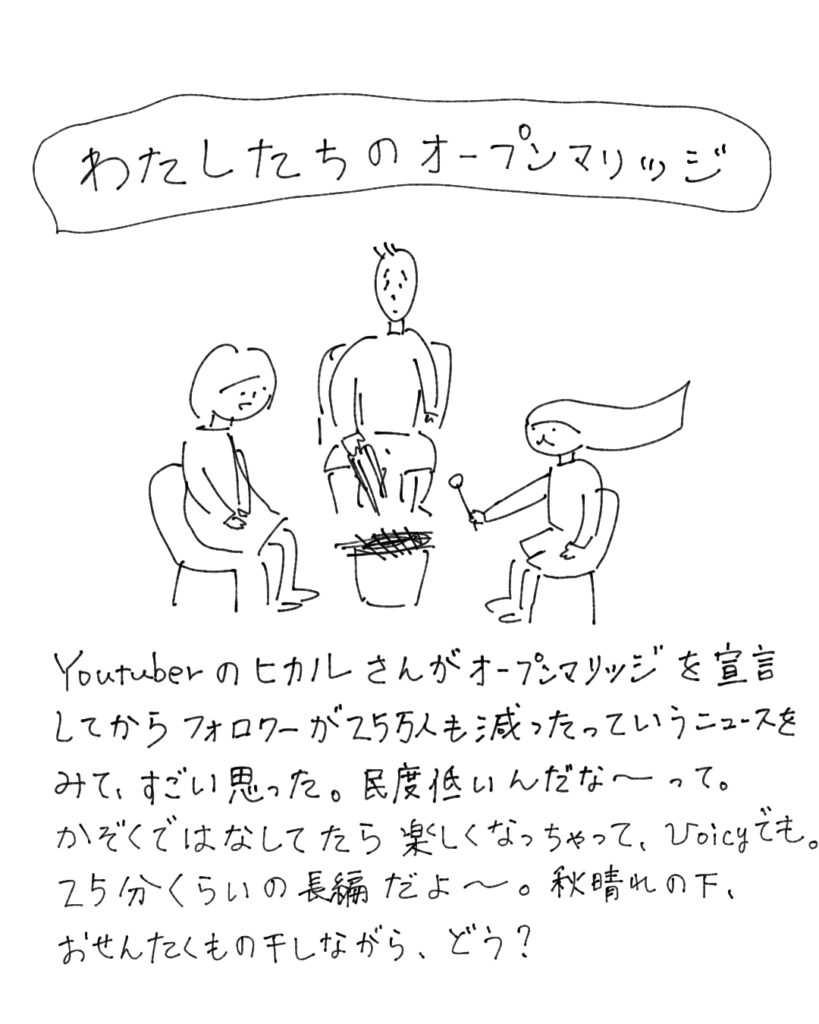 わたしたちのオープンマリッジ
Youtuberのヒカルさんがオープンマリッジを宣言
してからフォロワーが25万人も減ったっていうニュースを
みて、すごい思った。民度低いんだな〜って。
かぞくではなしてたら楽しくなっちゃって、Voicyでも。
25分くらいの長編だよ〜。秋晴れの下、
おせんたくもの干しながら、どう?